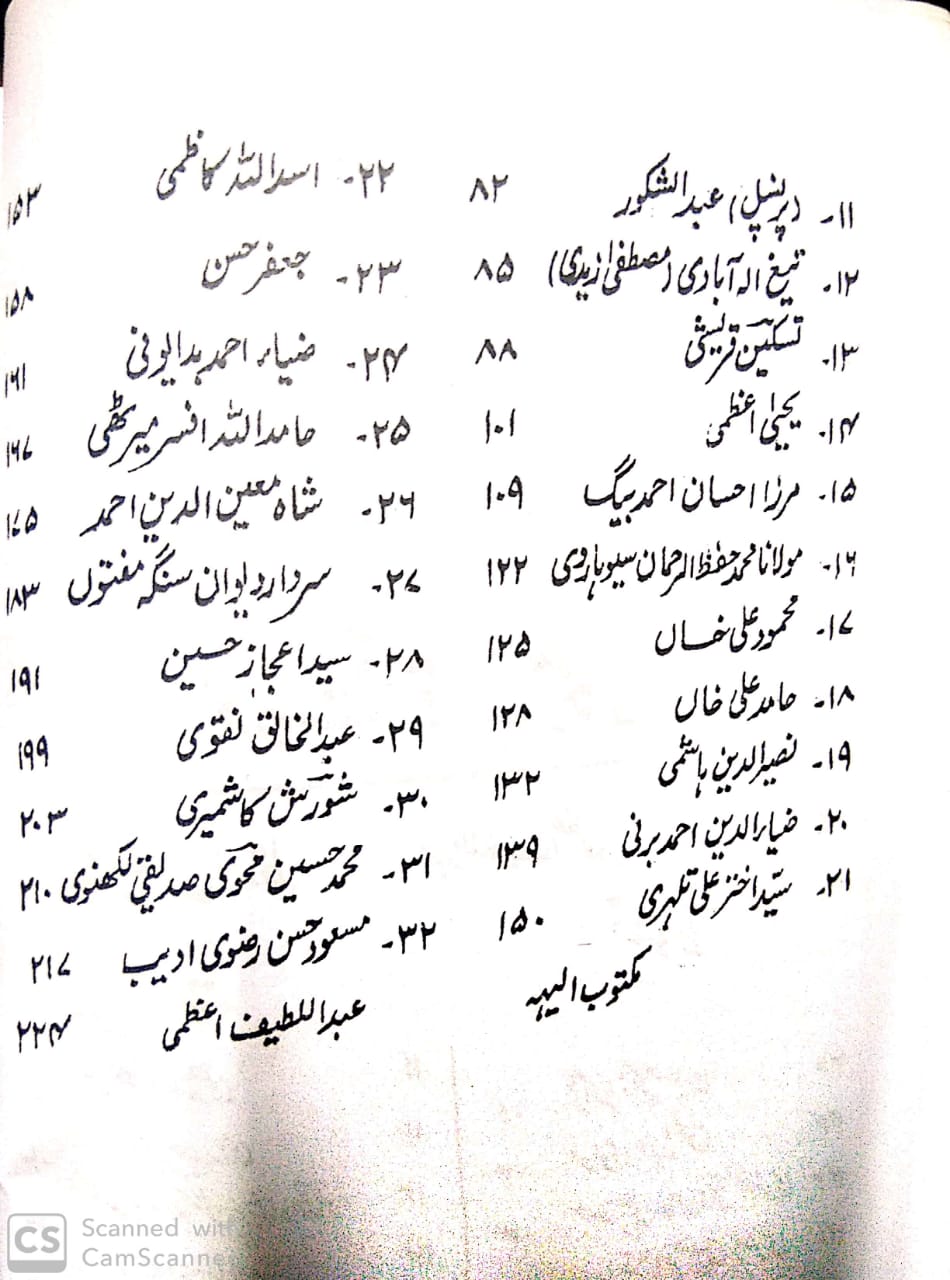 ۱۱۔ (پرنسپل) عبدالشکور ۸۲
۱۲۔ تیغ الہ آبادی (مصطفیٰ زیدی) ۸۵
۱۳۔ تسکینؔ قریشی ۸۸
۱۴۔ یحییٰ اعظمی ۱۰۱
۱۵۔ مرزا احسان احمد بیگ ۱۰۹
۱۶۔ مولانا محمد حفظ الرحمان سیوہاروی ۱۲۲
۱۷۔ محمود علی خاں ۱۲۵
۱۸۔ حامد علی خاں ۱۲۸
۱۹۔ نصیرالدین ہاشمی ۱۳۲
۲۰۔ ضیاءالدین احمد برنی ۱۳۹
۲۱۔ سیّد اختر علی تلہری ۱۵۰
مکتوب الیہ
۲۲۔ اسداللہ کاظمی ۱۵۳
۲۳۔ جعفر حسن ۱۵۸
۲۴۔ ضیاء احمد بدایونی ۱۶۱
۲۵۔ حامداللہ افسر میرٹھی ۱۶۷
۲۶۔ شاہ معین الدین احمد ۱۷۵
۲۷۔ سردار دیوان سنگھ مفتوں ۱۸۳
۲۸۔ سید اعجاز حسین ۱۹۱
۲۹۔ عبدالخالق نقوی ۱۹۹
۳۰۔ شورشؔ کاشمیری ۲۰۳
۳۱۔ محمد حسین محویؔ صدیقی لکھنوی ۲۱۰
۳۲۔ مسعود حسن رضوی ادیب ۲۱۷
عبداللطیف اعظمی ۲۲۴
CS Scanned with
CamScanner